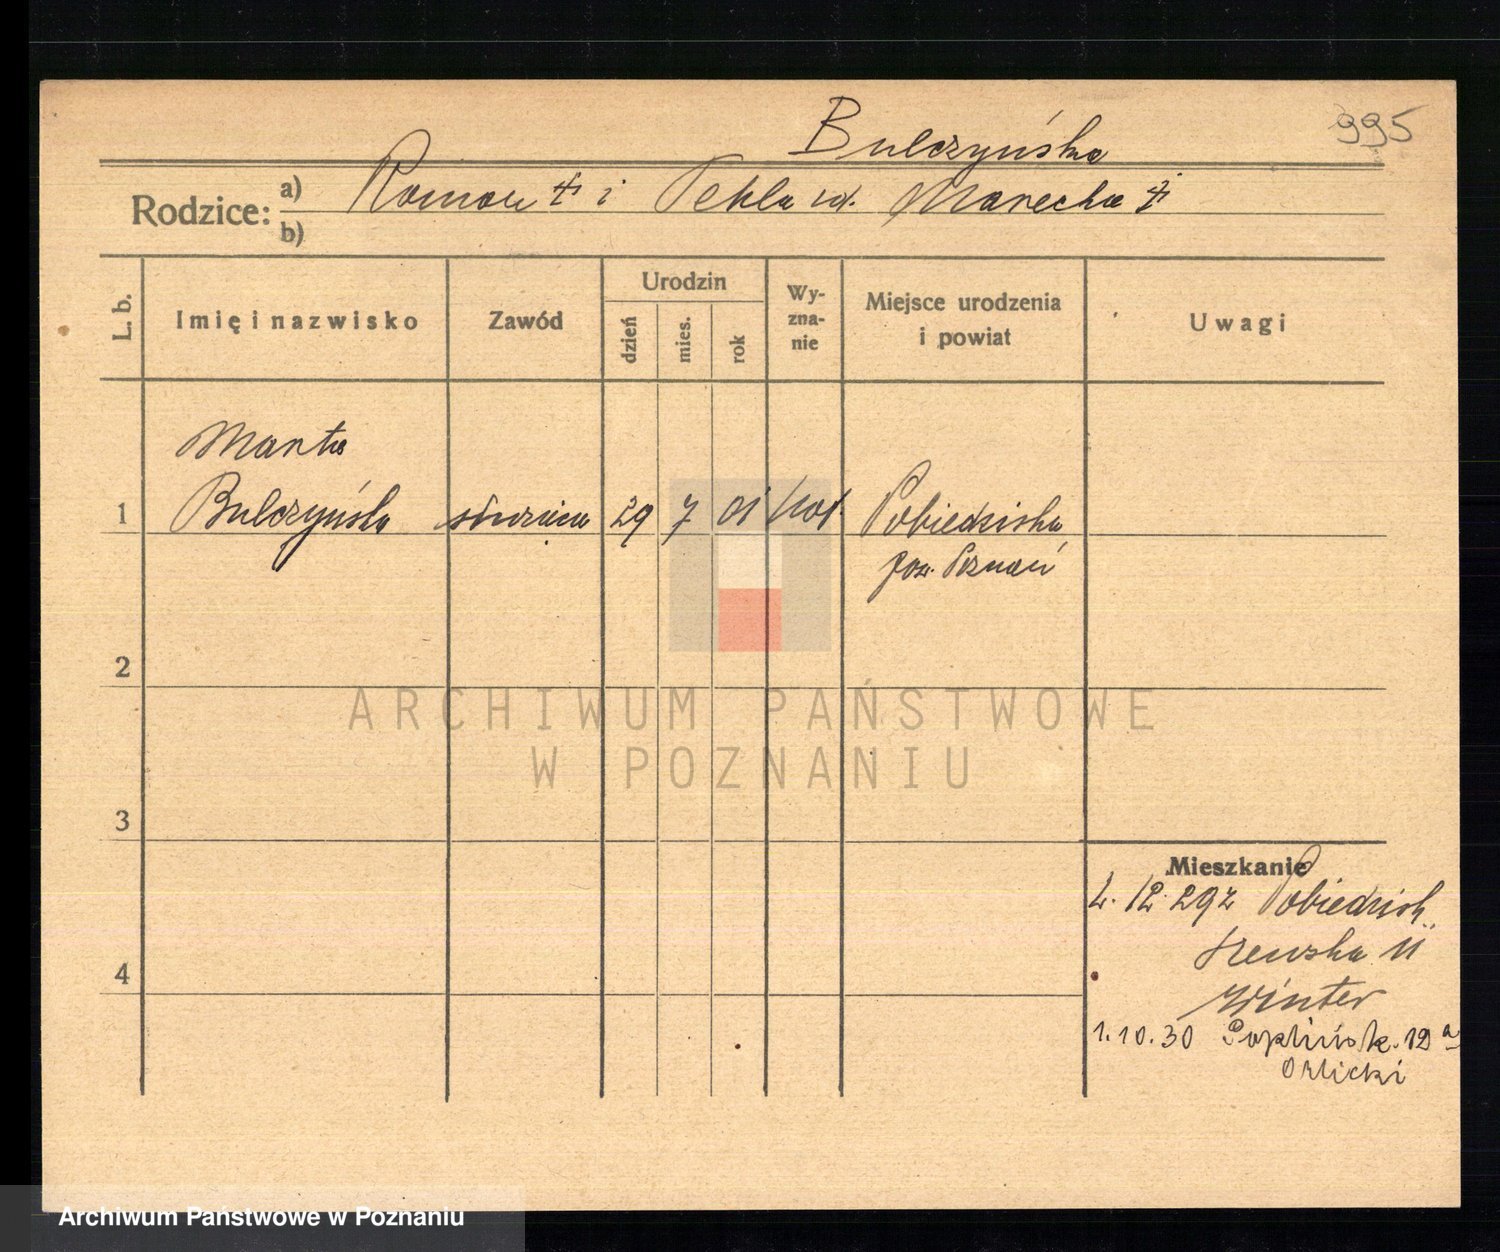 Bulczyńska
995
Rodzice: a) Roman † i Tekla zd. Marecka †
b)
L. b.
Imię i nazwisko
Zawód
Urodzin
dzień
mies.
rok
Wy-
zna-
nie
Miejsce urodzenia
i powiat
Uwagi
Marta
1 Bulczyńska służąca 29 7 01 kat. Pobiedziska
pow. Poznań
2
ARCHIWUM PAŃSTWOWE
W POZNANIU
3
Mieszkanie
2. 12. 29 z Pobiedzisk
11
4
Winter
1.10.30 Poplińsk. 12 a
Orlicki
Archiwum Państwowe w Poznaniu